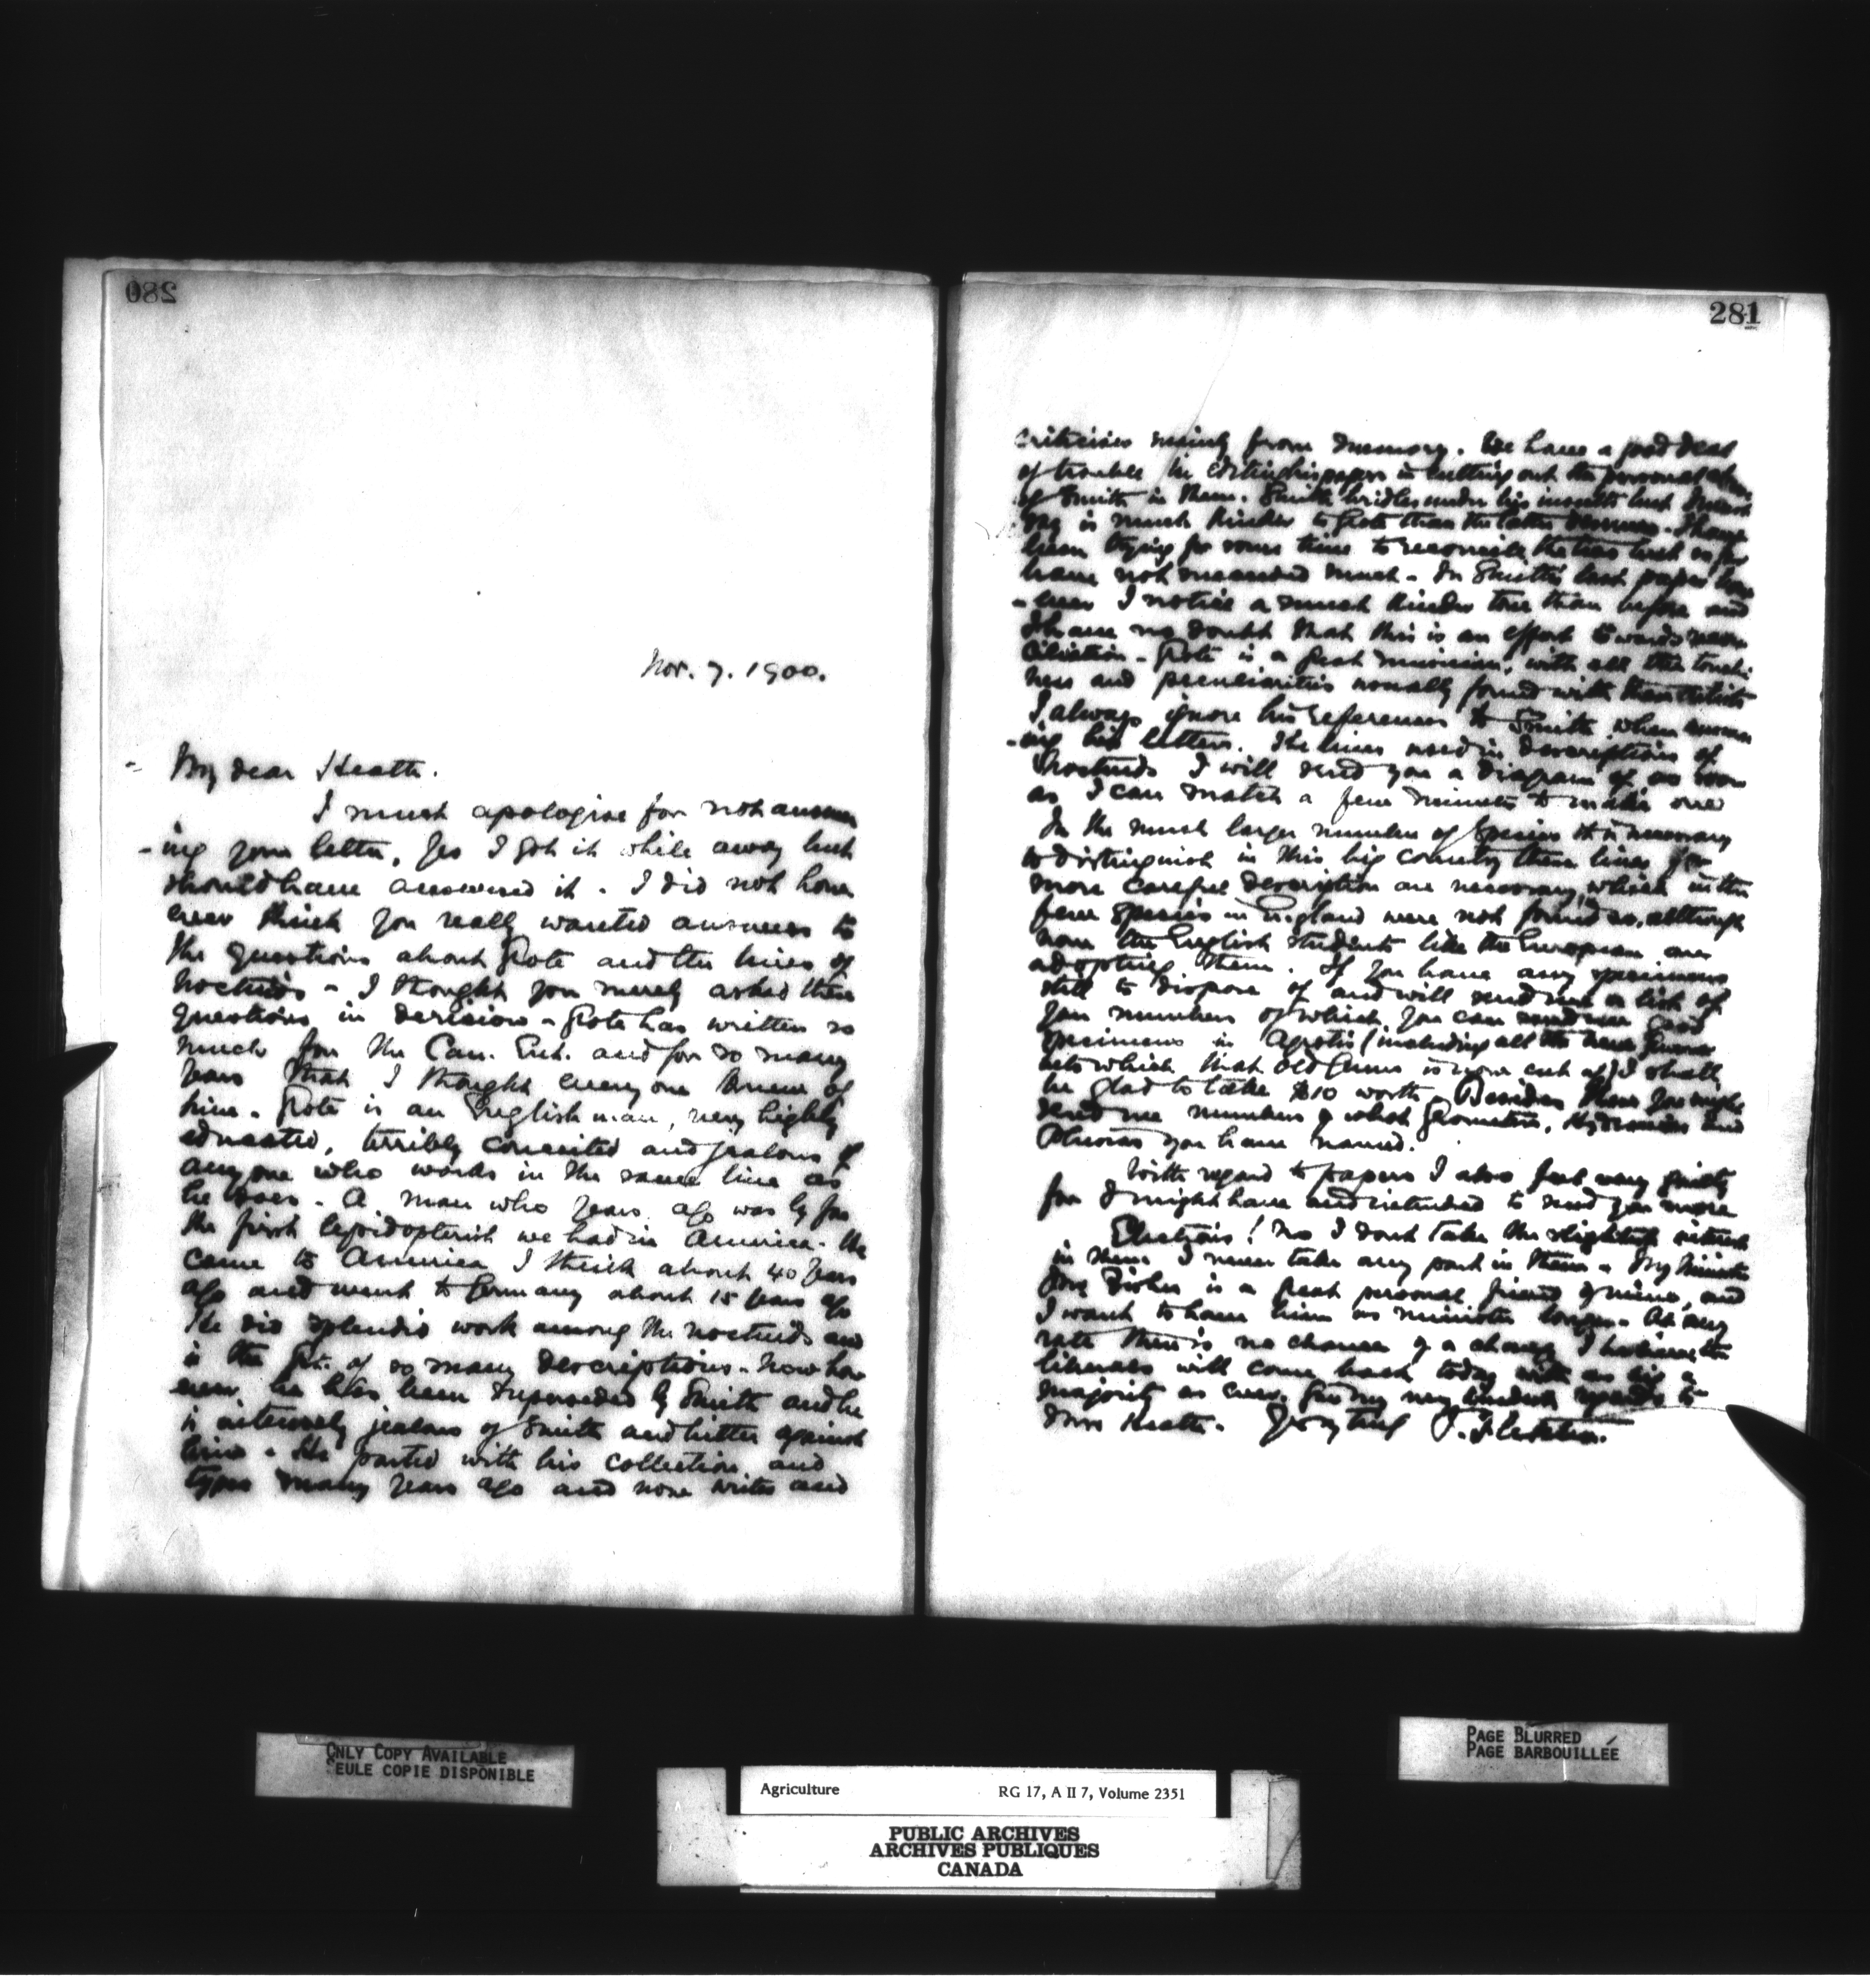 280
Nov. 7. 1900.
My dear Heath.
I must apologise for not answer
-ing your letter, Yes I got it while away but
should have answered it. I did not how
ever think you really wanted answers to
the questions about Grote and the lines of
Noctuids - I thought you merely asked these
questions in derision - Grote has written so
much for the Can. Ent. and for so many
years that I thought every one knew of
him. Grote is an Englishman, very highly
educated, terribly conceited and jealous of
anyone who works in the same line as
he does. A man who years ago was by far
the first lepidopterist we had in America. He
came to America I think about 40 years
ago and went to Germany about 15 years ago
He did splendid work among the noctuids and
is the of so many descriptions. Now how
ever he has been superseded by Smith and he
is intensely jealous of Smith and bitter against
him. He parted with his collection and
types many years ago and now writes and
281
criticises mainly from memory. We have a good deal
of trouble in editing his papers in cutting out the personal
of Smith in them. Smith under his insults but
is much kinder to Grote than the latter deserves. I have
been trying for some time to reconcile the two but so far
have not succeeded much. In Smith's last paper how
-ever I notice a much kinder tone than before and
I have no doubt that this is an effort towards recon
ciliation. Grote is a great musician, with all the touchi
ness and peculiarities usually found with
I always ignore his references to Smith when answer
-ing his letters. The lines used in descriptions of
Noctuids I will send you a diagram of as soon
as I can snatch a few minutes to make one
In the much larger number of species it is necessary
to distinguish in this big country these lines for
more careful description are necessary, which in the
few species in England were not found so, although
now the English students like the European are
adopting them. If you have any specimens
still to dispose of and will send me a list of
your numbers of which you can send me good
specimens in Agrotis (including all the new genera
into which that old genus is now cut up) I shall
be glad to take $10 worth. Besides these you might
send me numbers of what Geometers, Hydroecias and
Plusias you have named.
With regard to papers I also feel very guilty
for I might have and intended to send you more
Elections! No I dont take the slightest interest
in them I never take any part in them. My Minister
Mr Fisher is a great personal friend of mine, and
I want to have him as minister longer. At any
rate there is no chance of a change I believe the
liberals will come back today with as big a
majority as ever. Give my very kindest regards to
Mrs Heath. Yours truly J. Fletcher.
ONLY COPY AVAILABLE
SEULE COPIE DISPONIBLE
PAGE BLURRED
PAGE BARBOUILLÉE
Agriculture RG 17, A II 7, Volume 2351
PUBLIC ARCHIVES
ARCHIVES PUBLIQUES
CANADA